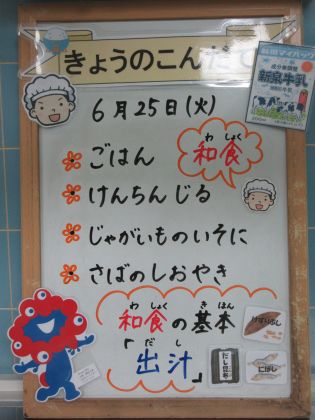 きょうのこんだて
6月25日(火)
ごはん
わ しょく
和食
けんちんじる
じゃがいものいそに
さばのしおやき
わ しょく き ほん
和食の基本
だ し
「出汁」
けずりぶし
だし昆布
にぼし
成分無調整
新泉牛乳